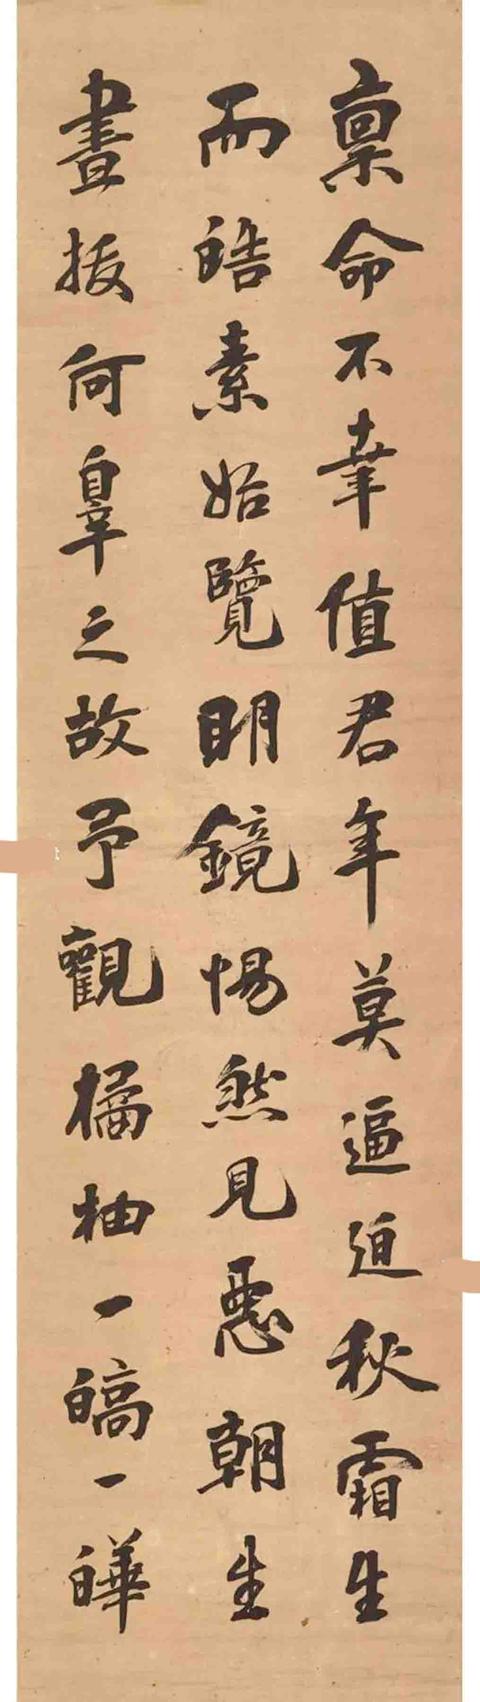 稟命不幸值君年莫逼迫秋霜生
而皓素始覽眀鏡惕然見惡朝生
晝拔何辠之故予觀橘柚一皜一皣